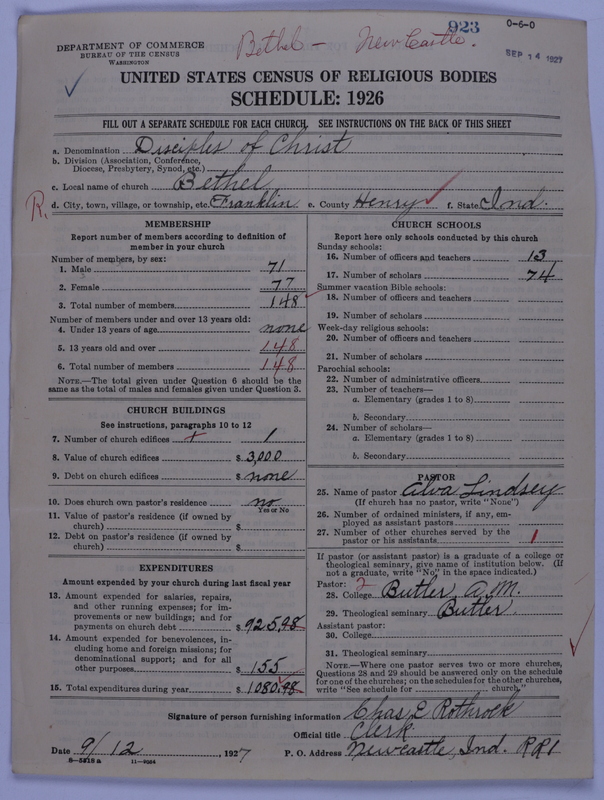 923
O-6-0
Bethel – New Castle.
SEP 14 1927
DEPARTMENT OF COMMERCE
BUREAU OF THE CENSUS
WASHINGTON
UNITED STATES CENSUS OF RELIGIOUS BODIES
SCHEDULE: 1926
FILL OUT A SEPARATE SCHEDULE FOR EACH CHURCH. SEE INSTRUCTIONS ON THE BACK OF THIS SHEET
a. Denomination Disciples of Christ
b. Division (Association, Conference,
Diocese, Presbytery, Synod, etc.)
c. Local name of church Bethel
R. d. City, town, village, or township, etc. Franklin e. County Henry f. State Ind.
MEMBERSHIP
Report number of members according to definition of
member in your church
Number of members, by sex:
1. Male 71
2. Female 77
3. Total number of members 148
Number of members under and over 13 years old:
4. Under 13 years of age none
5. 13 years old and over 148
6. Total number of members 148
NOTE.—The total given under Question 6 should be the
same as the total of males and females given under Question 3.
CHURCH BUILDINGS
See instructions, paragraphs 10 to 12
7. Number of church edifices 1
8. Value of church edifices $ 3,000
9. Debt on church edifices $ none
10. Does church own pastor's residence no
Yes or No
11. Value of pastor's residence (if owned by
church) $
12. Debt on pastor's residence (if owned by
church) $
EXPENDITURES
Amount expended by your church during last fiscal year
13. Amount expended for salaries, repairs,
and other running expenses; for im-
provements or new buildings; and for
payments on church debt $ 925.98
14. Amount expended for benevolences, in-
cluding home and foreign missions; for
denominational support; and for all
other purposes $ 155
15. Total expenditures during year $ 1080.98
CHURCH SCHOOLS
Report here only schools conducted by this church
Sunday schools:
16. Number of officers and teachers 13
17. Number of scholars 74
Summer vacation Bible schools:
18. Number of officers and teachers
19. Number of scholars
Week-day religious schools:
20. Number of officers and teachers
21. Number of scholars
Parochial schools:
22. Number of administrative officers
23. Number of teachers—
a. Elementary (grades 1 to 8)
b. Secondary
24. Number of scholars—
a. Elementary (grades 1 to 8)
b. Secondary
PASTOR
25. Name of pastor Alva Lindsey
(If church has no pastor, write "None")
26. Number of ordained ministers, if any, em-
ployed as assistant pastors
27. Number of other churches served by the
pastor or his assistants 1
If pastor (or assistant pastor) is a graduate of a college or
theological seminary, give name of institution below. (If
not a graduate, write "No" in the space indicated.)
Pastor: 2
28. College Butler A.M.
29. Theological seminary Butler
Assistant pastor:
30. College
31. Theological seminary
NOTE.—Where one pastor serves two or more churches,
Questions 28 and 29 should be answered only on the schedule
for one of the churches; on the schedules for the other churches,
write "See schedule for church."
Signature of person furnishing information Chas. E Rothrock
Official title Clerk
Date 9/12, 1927 P. O. Address Newcastle, Ind. RR1
8—5318 a 11—9064